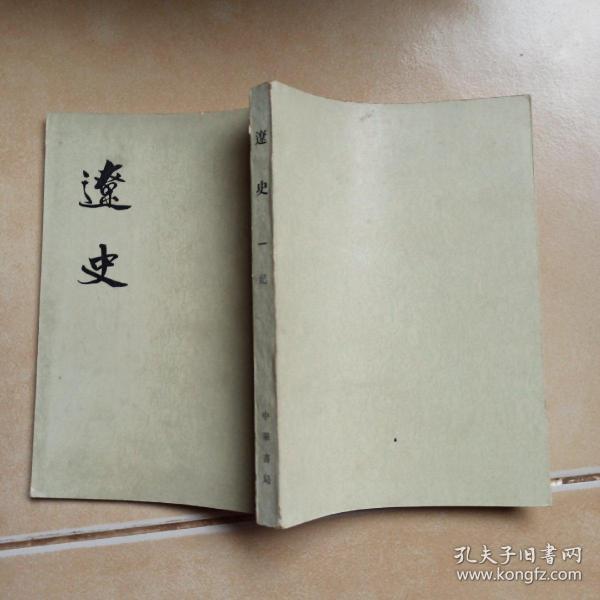 遼史
遼史 一 紀
中華書局
孔夫子旧书网
www.kongfz.com